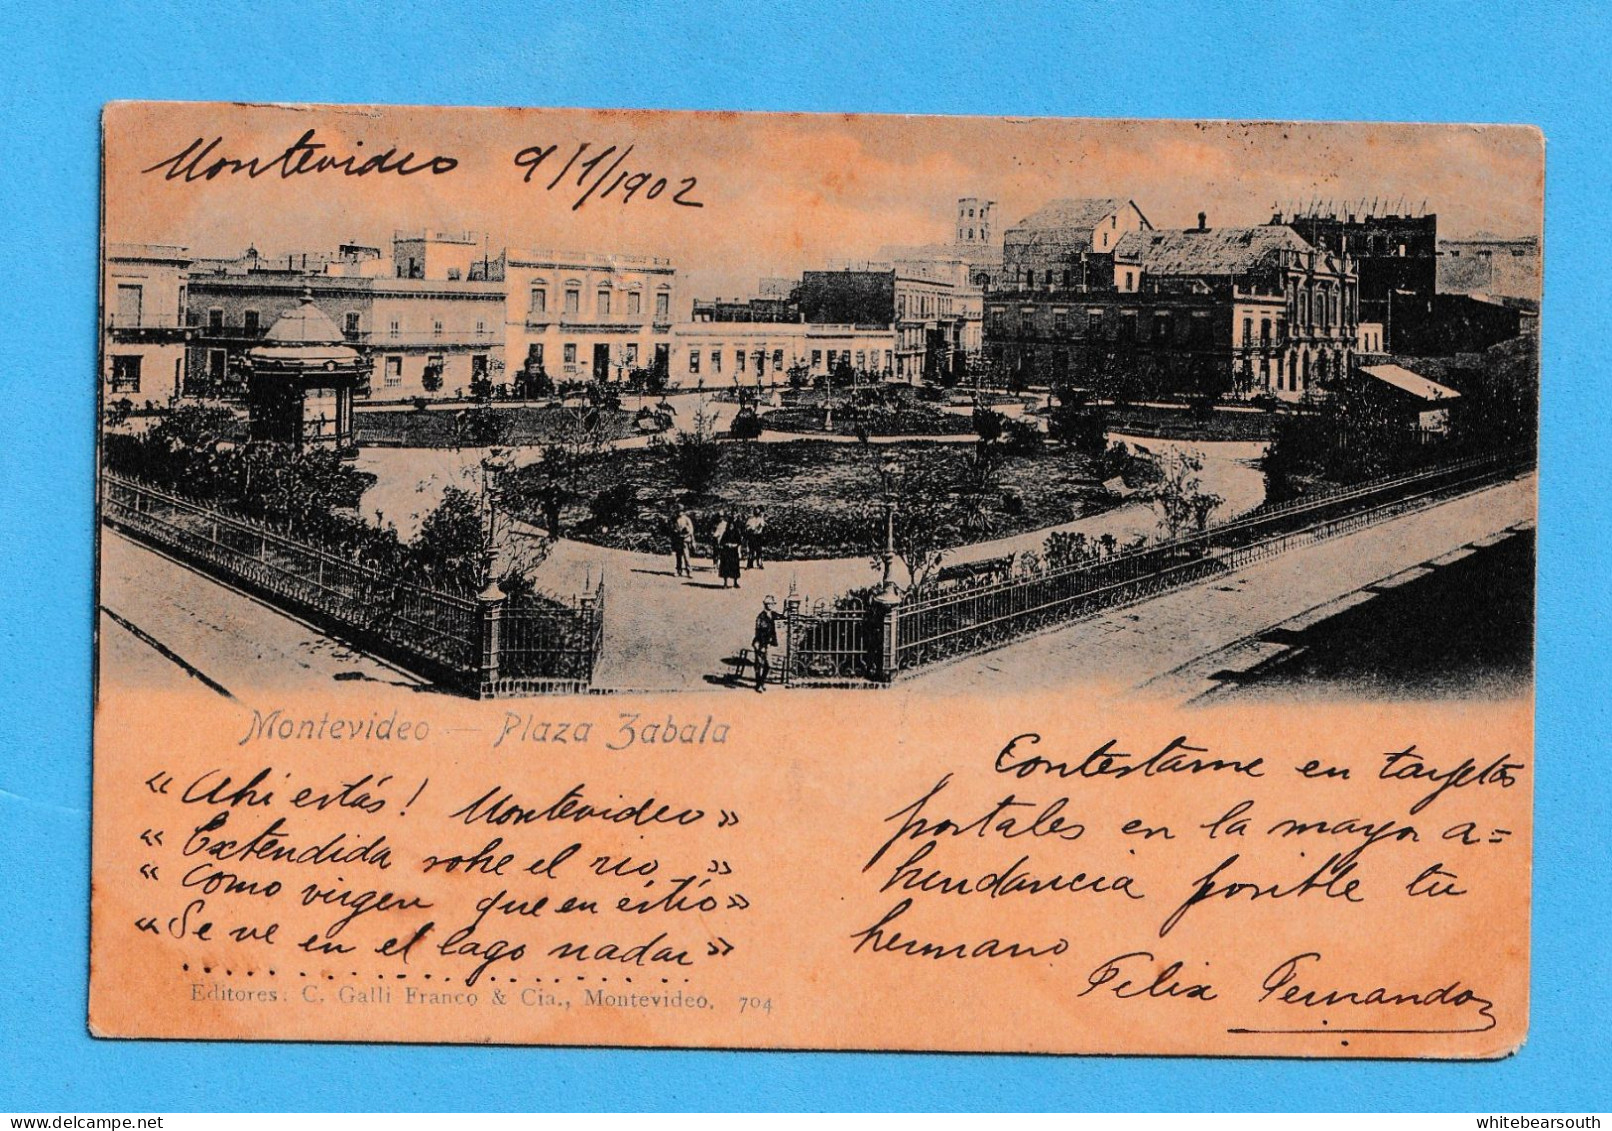 Montevideo 9/1/1902
Montevideo — Plaza Zabala
« Ahi estás! Montevideo »
« Extendida sobre el rio »
« Como virgen que en estío »
« Se ve en el lago nadar »
. . . . . . . . . . . . . . . . . . . . . .
Editores: C. Galli Franco & Cia., Montevideo. 704
Contestame en tarjetas
portales en la mayor a=
bundancia posible tu
hermano
Felix Fernandez
whitebearsouth